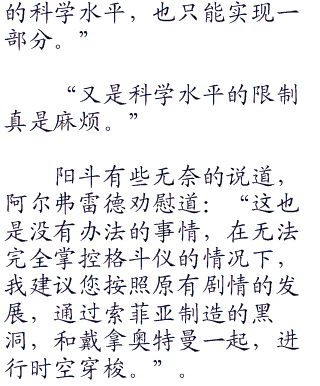 的科学水平，也只能实现一
部分。”
“又是科学水平的限制
真是麻烦。”
阳斗有些无奈的说道，
阿尔弗雷德劝慰道：“这也
是没有办法的事情，在无法
完全掌控格斗仪的情况下，
我建议您按照原有剧情的发
展，通过索菲亚制造的黑
洞，和戴拿奥特曼一起，进
行时空穿梭。”。